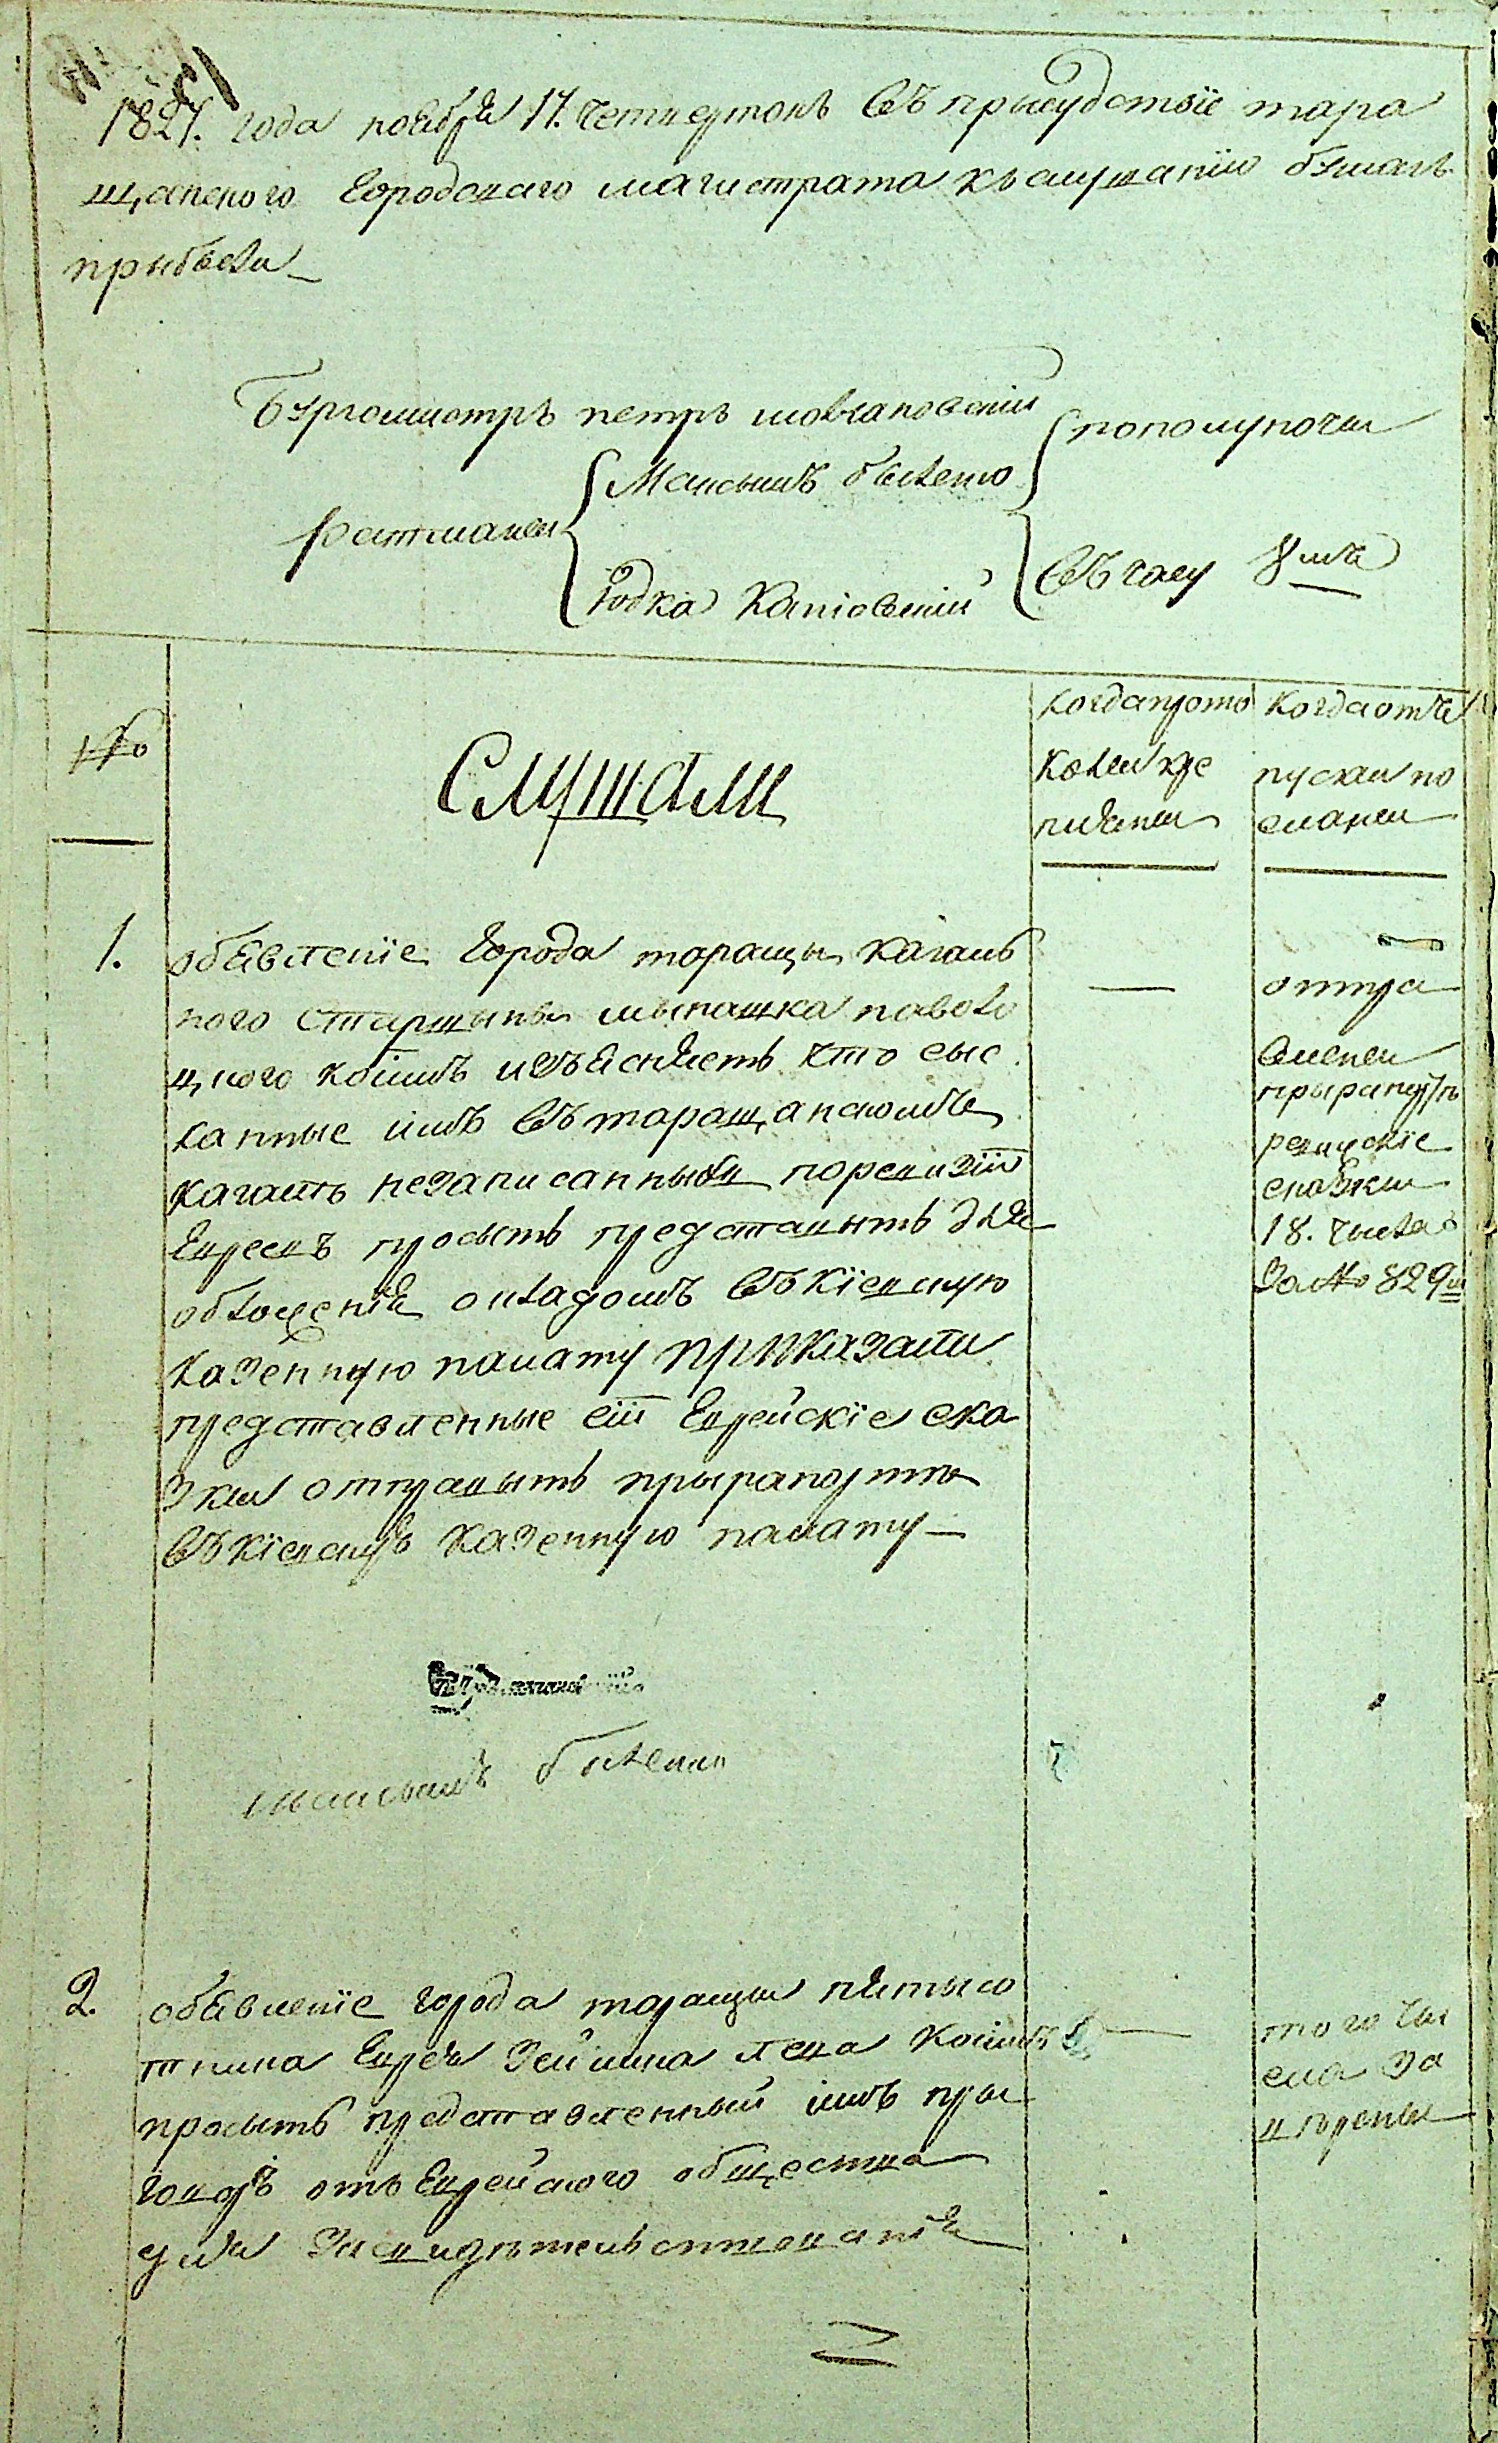 1827. года ноября 17. четвертокъ въ прысудствіе тара
щанского городоваго магистрата къ слушанію бумагъ
прыбыли
Бургомистръ петръ мовчановскій
Ратманы
Максымъ быленко
Юдка Каніовскій
пополуночы
въ часу 8мъ
№
Слушали
когда прото
колы кре
пилены
когда отъ
пуски по
сланы
1.
обявленіе города таращы кагаль
ного старшыны мыпашка паволо
цкого коимъ изъясняетъ что сыс
канные имъ въ таращанскомъ
кагалѣ незаписанныхъ поревизіи
Евреевъ просытъ представыть для
обложенія окладомъ въ кіевскую
казенную палату приказали
представленные сіи Еврейскіе ска
зкы отправыть прырапортѣ
въ кіевскую казенную палату
отпра
влены
прырапортѣ
ревизскіе
сказкы
18. чысла
за № 829м
максымъ быленко
2.
обявленіе города таращы пятысо
тника Еврея Зеймана лева коимъ
просытъ представленный имъ пры
говоръ отъ Еврейского общества
для засвидѣтельствованія
того чы
сла за
вѣрены